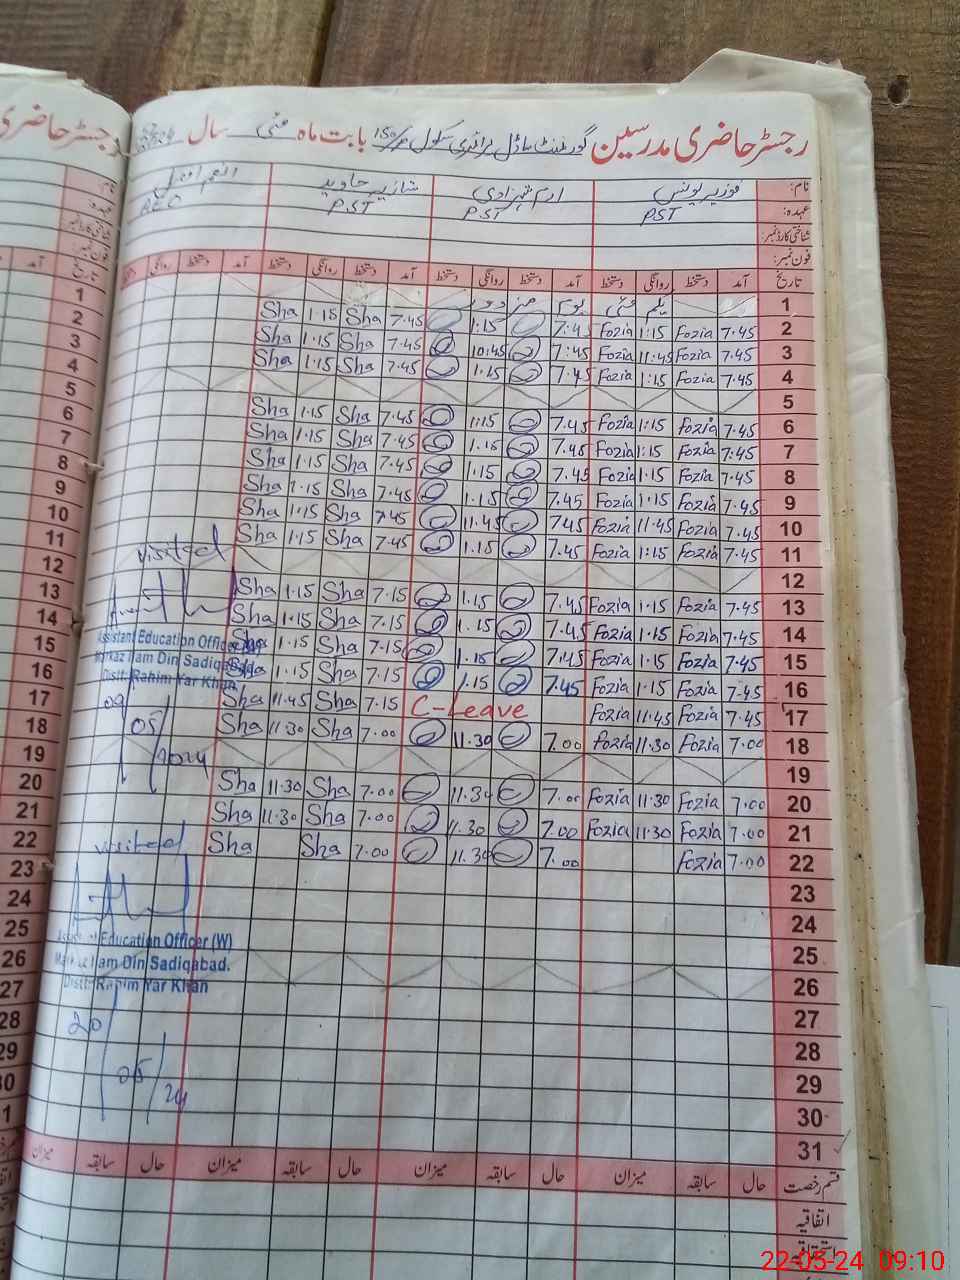 رجسٹر حاضری مدرسین گورنمنٹ ماڈل پرائمری سکول 150/P بابت ماہ مئی سال
نام: فوزیہ یونس ارم شہزادی شازیہ جاوید
عہدہ: PST PST PST AEO
شناختی کارڈ نمبر:
فون نمبر:
تاریخ آمد دستخط روانگی دستخط آمد دستخط روانگی دستخط آمد دستخط روانگی دستخط آمد دستخط روانگی دستخط
1 یکم مئی یوم مزدور
2 7.45 Fozia 1:15 Fozia 7:45 1:15 7.45 Sha 1.15 Sha
3 7.45 Fozia 11:45 Fozia 7:45 10:45 7.45 Sha 1.15 Sha
4 7.45 Fozia 1:15 Fozia 7.45 1.15 7.45 Sha 1.15 Sha
5
6 7.45 Fozia 1:15 Fozia 7.45 1:15 7.45 Sha 1.15 Sha
7 7.45 Fozia 1:15 Fozia 7.45 1.15 7.45 Sha 1.15 Sha
8 7.45 Fozia 1.15 Fozia 7.45 1.15 7.45 Sha 1.15 Sha
9 7.45 Fozia 1.15 Fozia 7.45 1.15 7.45 Sha 1.15 Sha
10 7.45 Fozia 11.45 Fozia 7.45 11.45 7.45 Sha 1.15 Sha
11 7.45 Fozia 1:15 Fozia 7.45 1.15 7.45 Sha 1.15 Sha
visited
12
13 7.45 Fozia 1.15 Fozia 7.45 1.15 7.15 Sha 1.15 Sha
14 7.45 Fozia 1.15 Fozia 7.45 1.15 7.15 Sha 1.15 Sha
15 7.45 Fozia 1.15 Fozia 7.45 1.15 7.15 Sha 1.15 Sha
16 7.45 Fozia 1.15 Fozia 7.45 1.15 7.15 Sha 1.15 Sha
Assistant Education Officer
Markaz Ilam Din Sadiqabad
Distt: Rahim Yar Khan
09/05/2024
17 7.45 Fozia 11.45 Fozia C-Leave 7.15 Sha 11.45 Sha
18 7.00 Fozia 11.30 Fozia 7.00 11.30 7.00 Sha 11.30 Sha
19
20 7.00 Fozia 11.30 Fozia 7.00 11.30 7.00 Sha 11.30 Sha
21 7.00 Fozia 11.30 Fozia 7.00 11.30 7.00 Sha 11.30 Sha
22 7.00 Fozia 7.00 11.30 7.00 Sha Sha
visited
23
24
25
Assistant Education Officer (W)
Markaz Ilam Din Sadiqabad.
Distt: Rahim Yar Khan
20/05/24
26
27
28
29
30
31
قسم رخصت حال سابقہ میزان حال سابقہ میزان حال سابقہ میزان حال سابقہ میزان
اتفاقیہ
استحقاقیہ
22-05-24 09:10